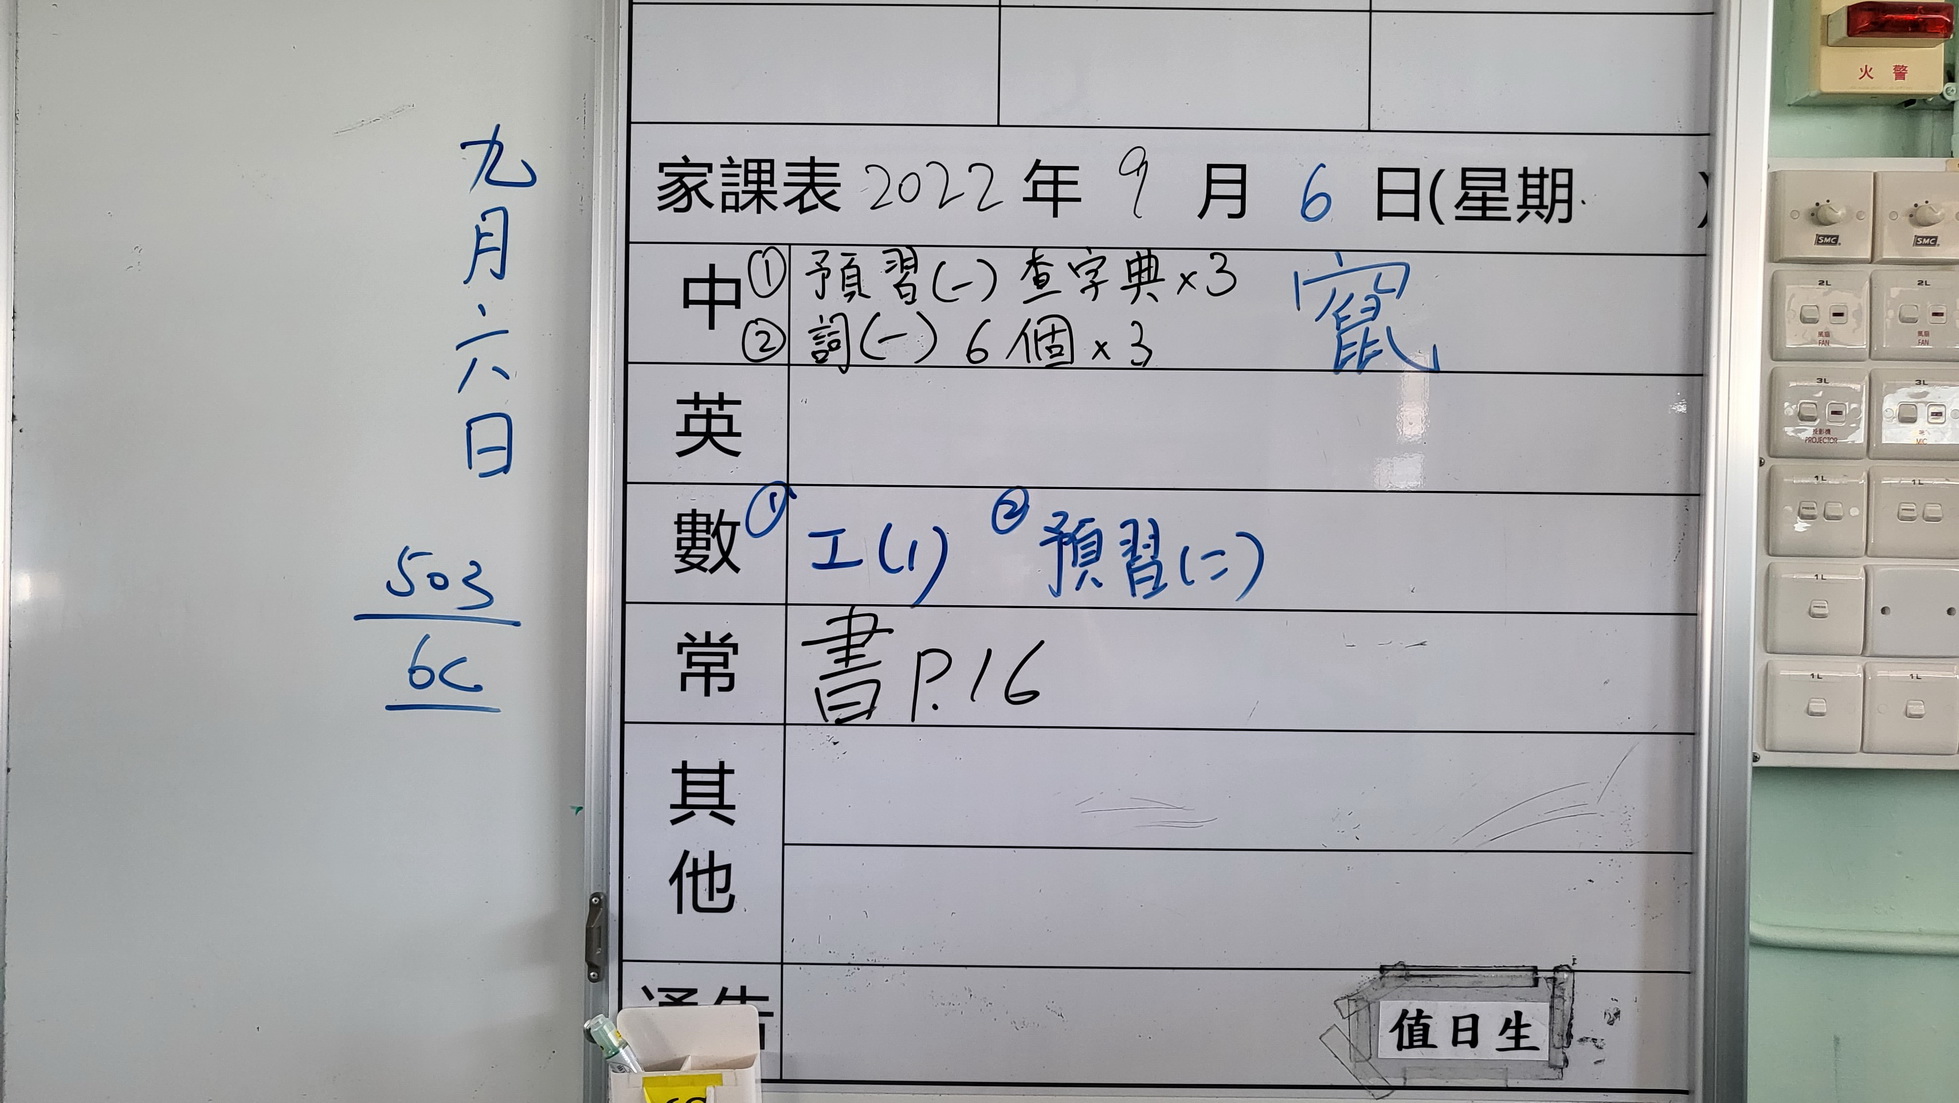 九月六日
503
6C
家課表 2022 年 9 月 6 日(星期 )
中 ① 預習(一) 查字典×3 竄
② 詞(一) 6個×3
英
數 ① 工(1) ② 預習(二)
常 書P.16
其他
通告
值日生
火警
SMC SMC
2L 2L
風扇 FAN 風扇 FAN
3L 3L
投影機 PROJECTOR MIC
1L 1L
1L
1L 1L